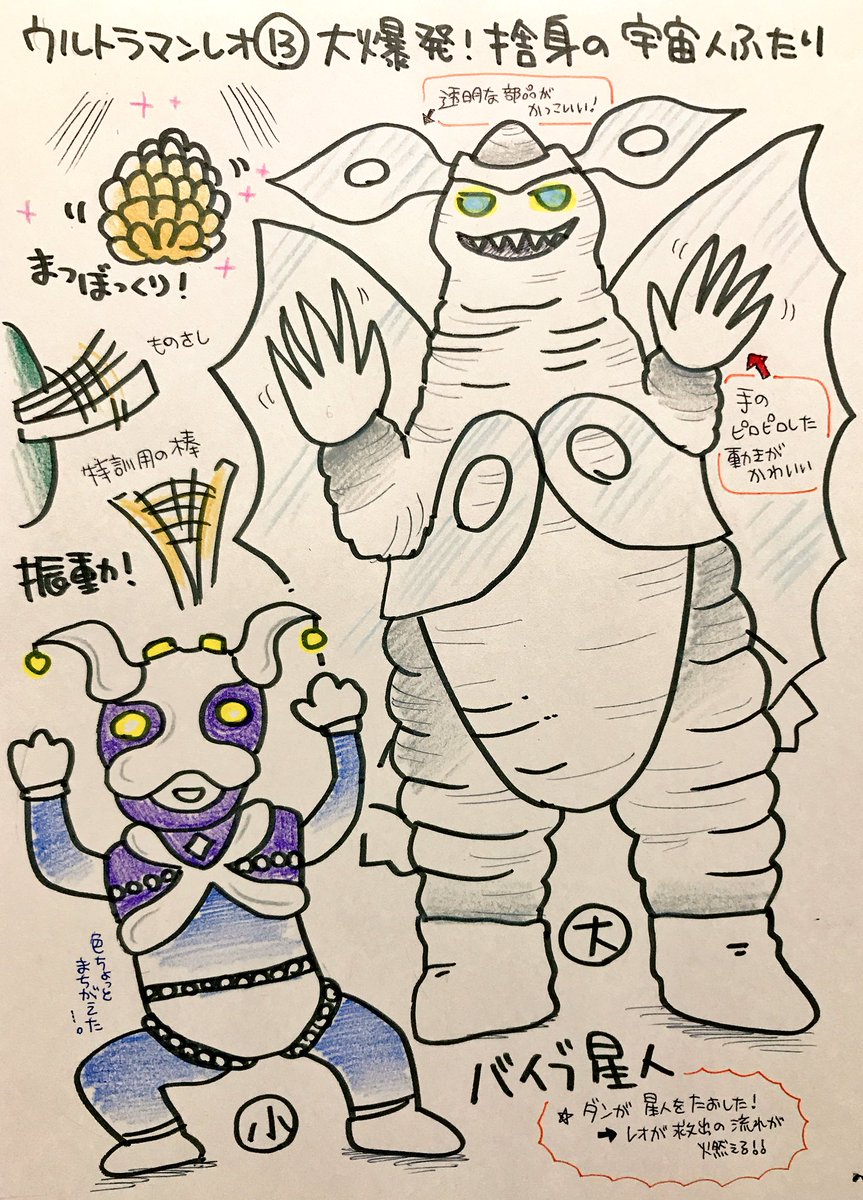 ウルトラマンレオ⑬大爆発!捨身の宇宙人ふたり
透明な部品が
かっこいい!
まつぼっくり!
ものさし
手の
ピロピロした
動きが
かわいい
特訓用の棒
振動!
色ちょっと
まちがえた
!。
大
バイブ星人
小
☆ダンが星人をたおした!
➡レオが救出の流れが
燃える!!